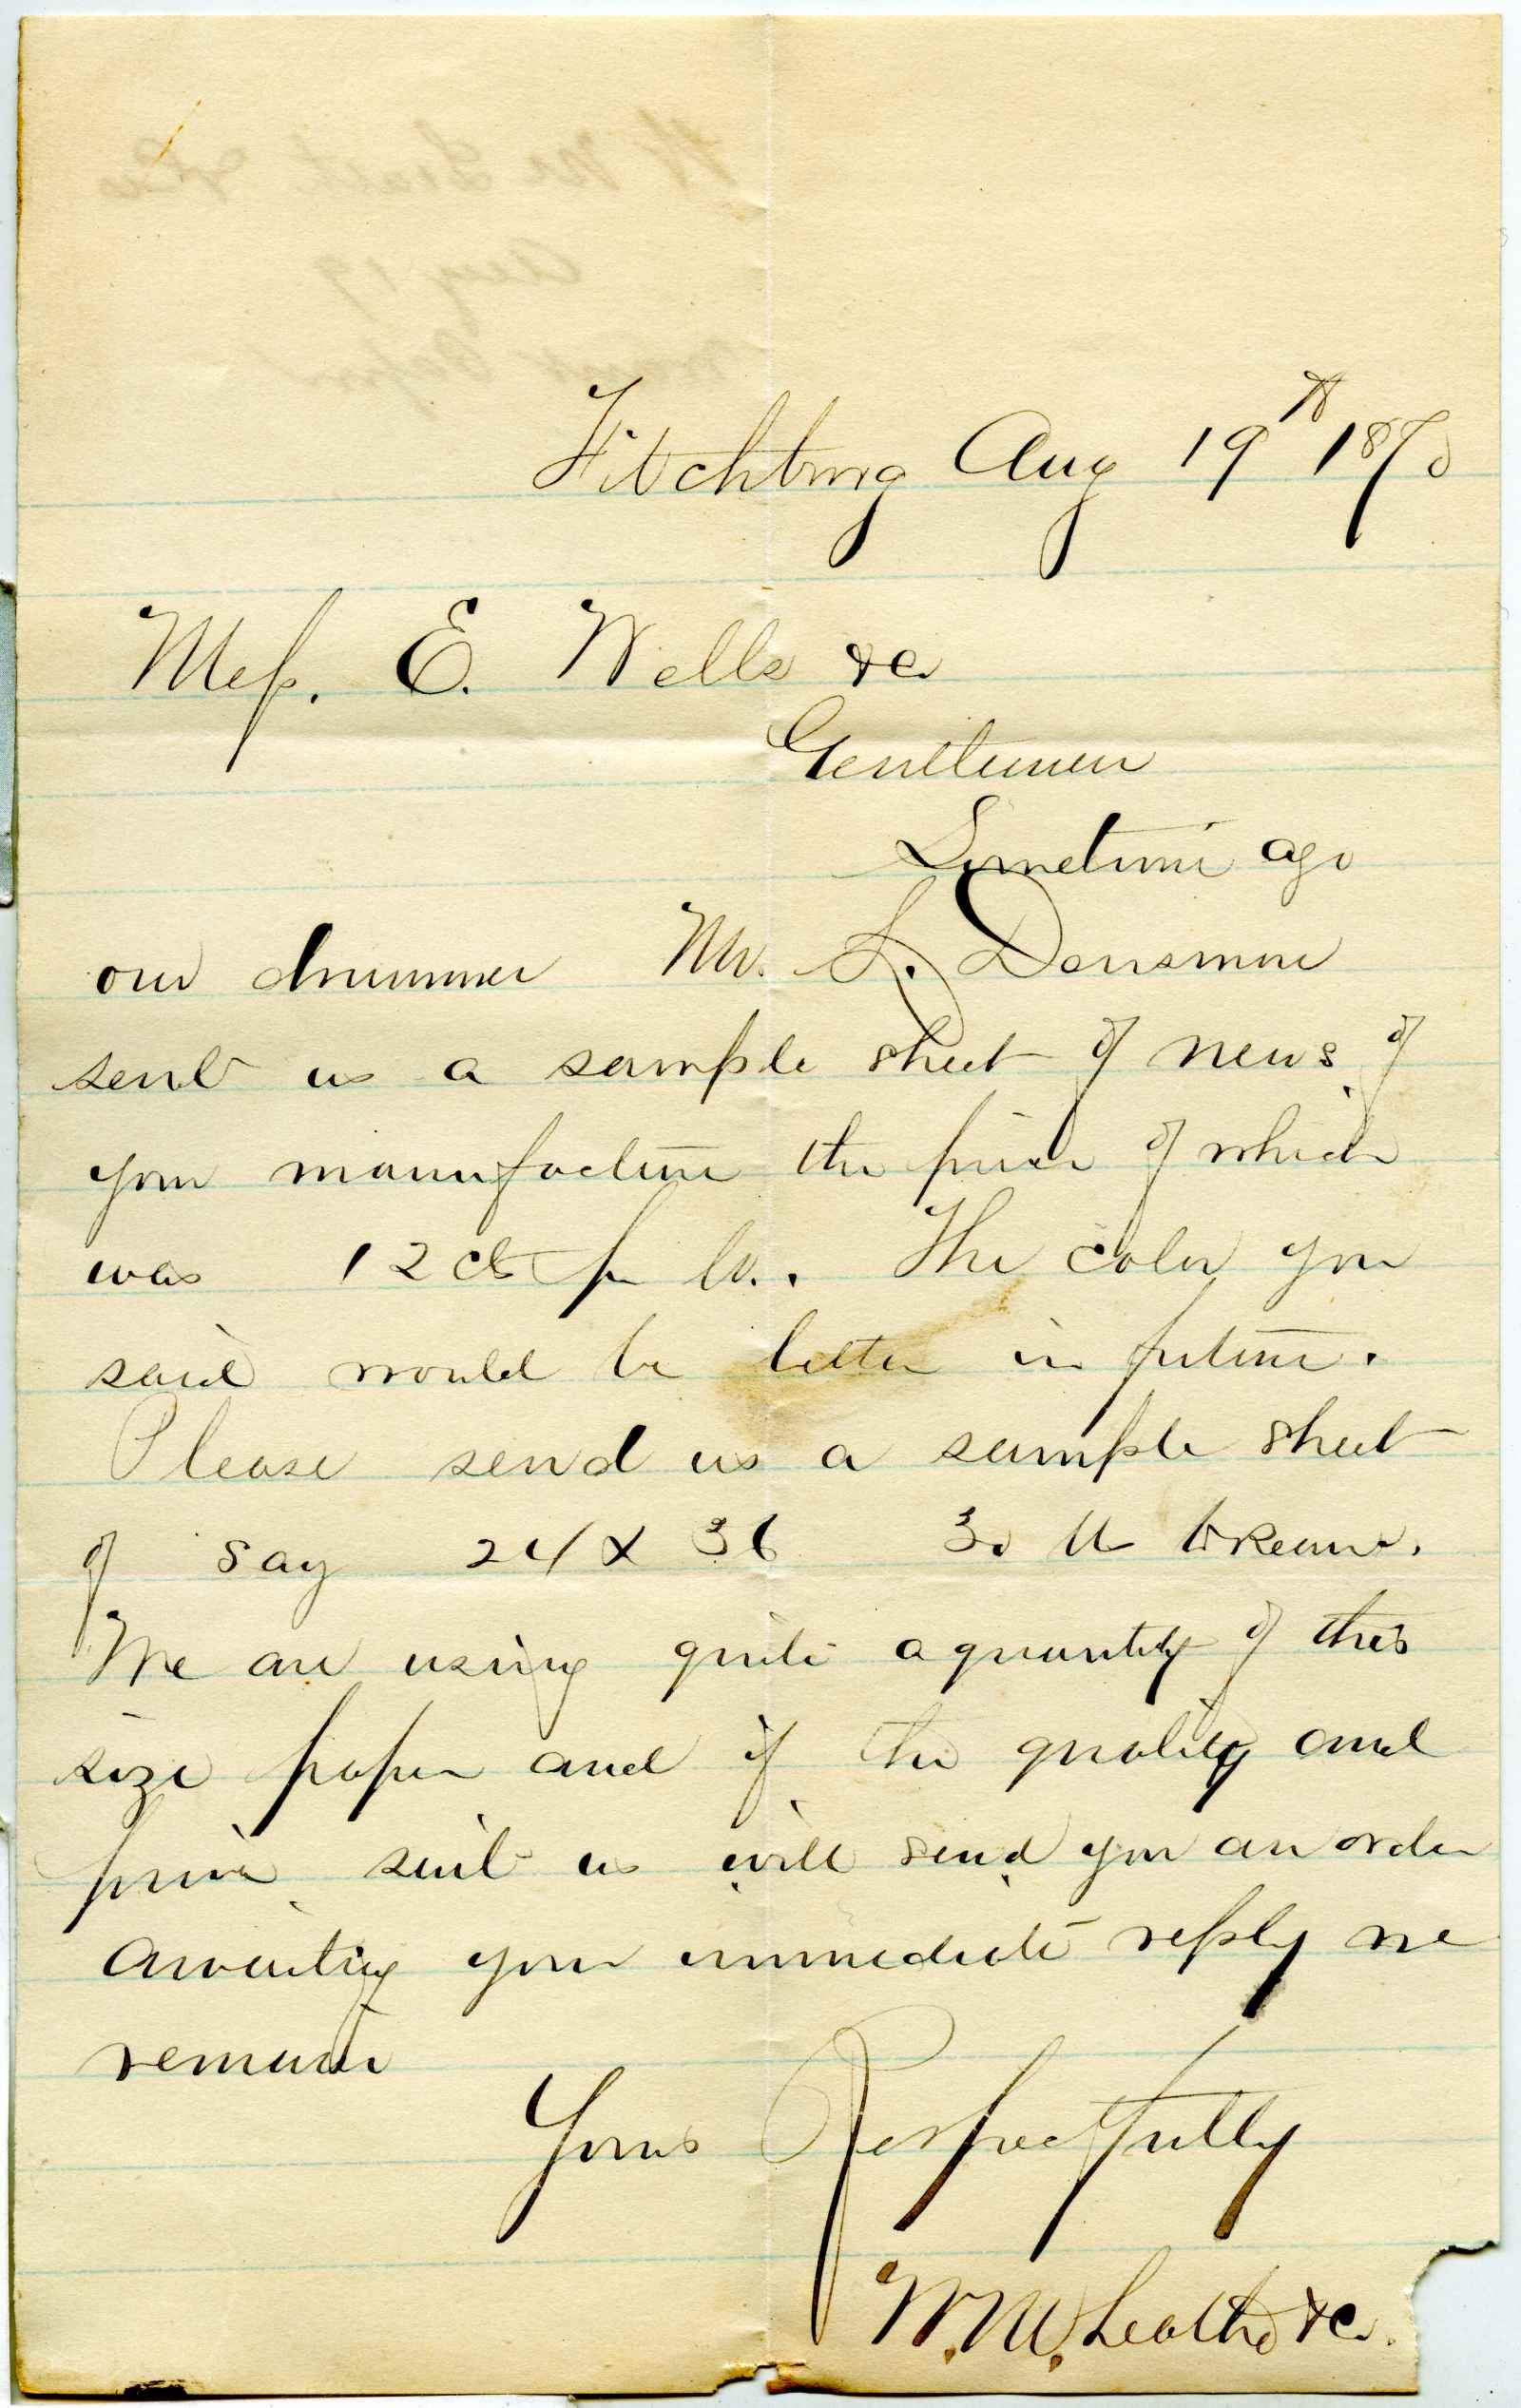 Fitchburg Aug 19th 1870
Mess. E. Wells & Co
Gentlemen
Sometime ago
our drummer Mr. L. Densmore
sent us a sample sheet of news of
your manufacture the price of which
was 12 cts per lb. . The color you
said would be better in future.
Please send us a sample sheet
of say 24 X 36 30 lb to Ream.
We are using quite a quantity of this
size paper and if the quality and
price suit us will send you an order
awaiting your immediate reply we
remain
Yours Respectfully
W. M. Leathe & Co.